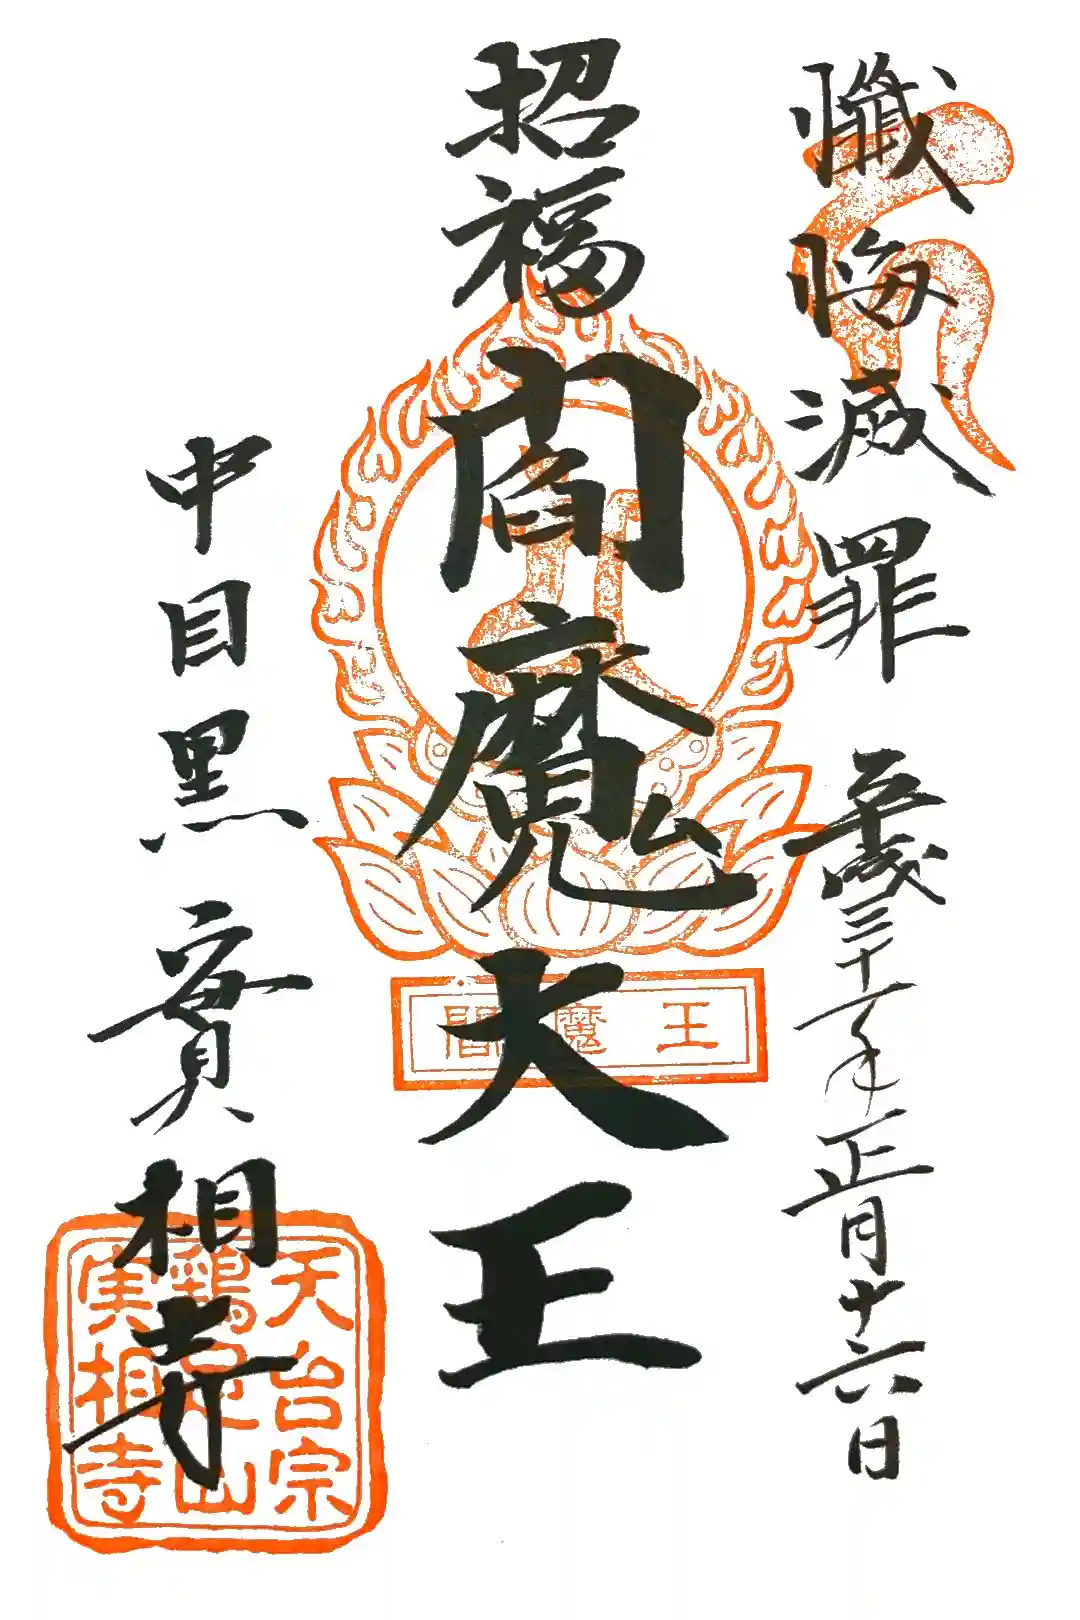 懺悔滅罪 平成三十一年正月十六日
招福
閻魔大王
中目黒 實相寺
閻魔王
天台宗
鶏足山
実相寺